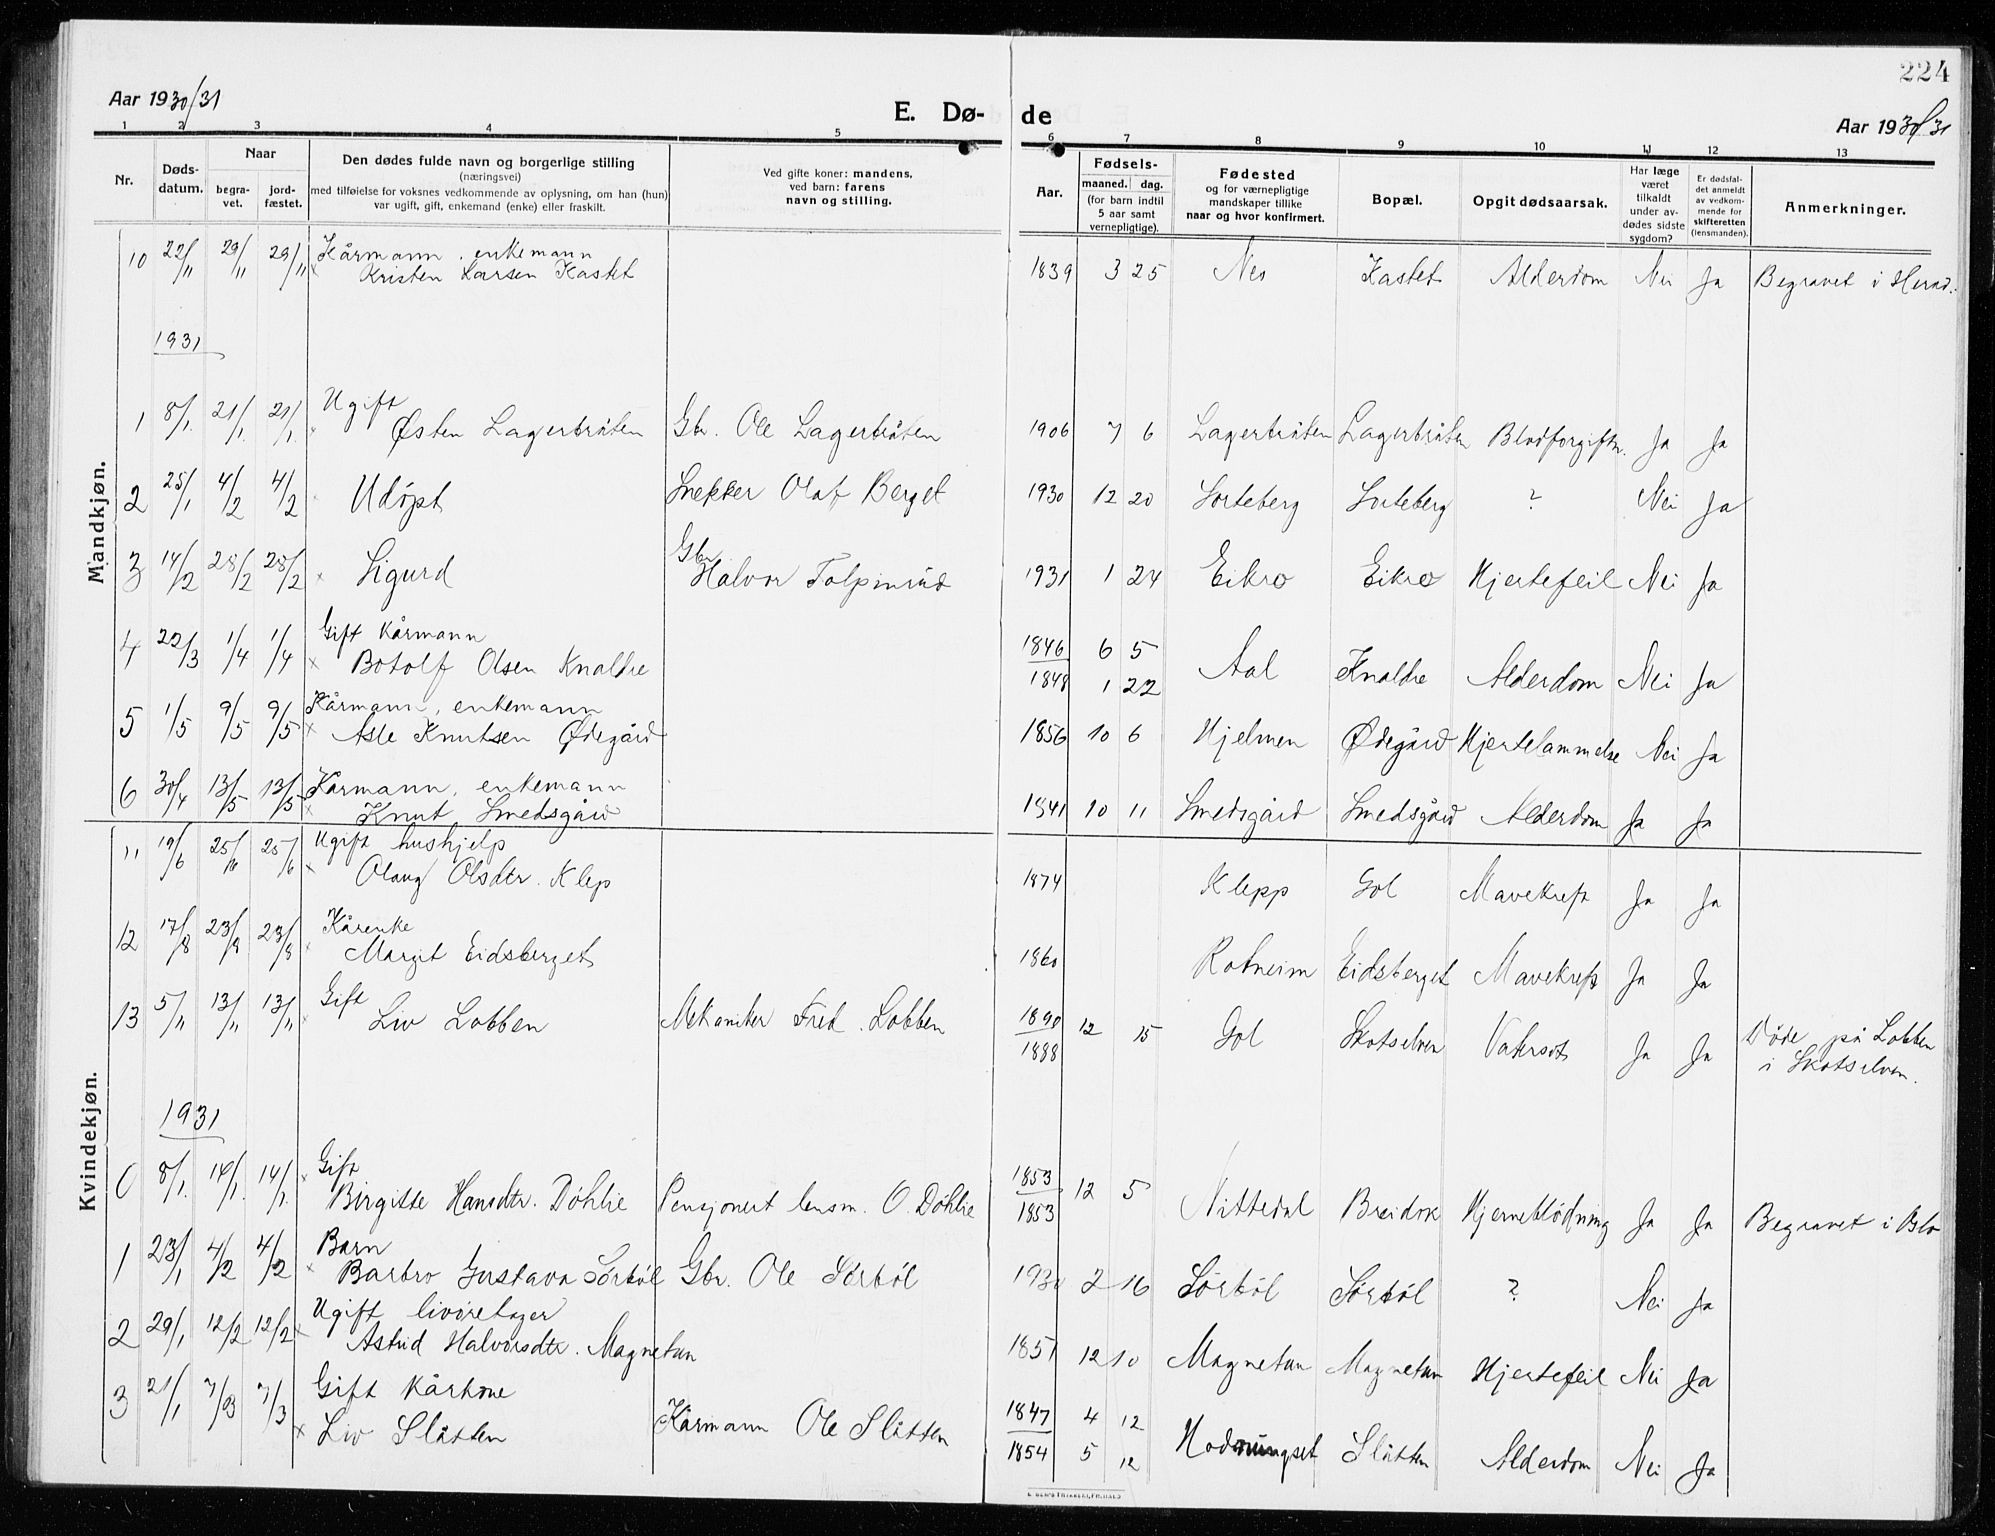 224
Aar 1930/31
E. Dø- de
Aar 1930/31
1 2 3 4 5 6 7 8 9 10 11 12 13
Nr.
Døds-datum.
Naar
begra-vet.
jord-fæstet.
Den dødes fulde navn og borgerlige stilling
(næringsvei)
med tilføielse for voksnes vedkommende av oplysning, om han (hun)
var ugift, gift, enkemand (enke) eller fraskilt.
Ved gifte koner: mandens,
ved barn: farens
navn og stilling.
Aar.
Fødsels-
maaned. dag.
(for barn indtil
5 aar samt
vernepligtige).
Fødested
og for værnepligtige
mandskaper tillike
naar og hvor konfirmert.
Bopæl.
Opgit dødsaarsak.
Har læge
været
tilkaldt
under av-
dødes sidste
sygdom?
Er dødsfal-
det anmeldt
av vedkom-
mende for
skifteretten
(lensmanden).
Anmerkninger.
Mandkjøn.
10 22/11 29/11 29/11 Kårmann, enkemann
Kristen Larsen Kastet 1839 3 25 Nes Kastet Alderdom Nei Ja Begravet i Herad.
1931
1 8/1 21/1 21/1 Ugift
Østen Lagertråten Gbr. Ole Lagertråten 1906 7 6 Lagertråten Lagertråten Blodforgiftn. Ja Ja
2 25/1 4/2 4/2 Udöpt Snekker Olaf Berget 1930 12 20 Sorteberg Sorteberg ? Nei Ja
3 14/2 28/2 28/2 x Sigurd Gbr. Halvor Tolpinrud 1931 1 24 Eikro Eikro Hjertefeil Nei Ja
4 22/3 1/4 1/4 Gift Kårmann
x Botolf Olsen Knaldre 1846 6 5 Aal Knaldre Alderdom Nei Ja
1848 1 22
5 1/5 9/5 9/5 Kårmann, enkemann
x Asle Knutsen Ødegård 1856 10 6 Hjelmen Ødegård Hjertelammelse Nei Ja
6 30/4 13/5 13/5 Kårmann, enkemann
x Knut Smedsgård 1841 10 11 Smedsgård Smedsgård Alderdom Ja Ja
Kvindekjøn.
11 19/6 25/6 25/6 Ugift hushjelp
x Olaug Olsdtr. Klep 1874 Klepp Gol Mavekreft Ja Ja
12 17/8 23/8 23/8 Kårenke
x Margit Eidsberget 1860 Rotneim Eidsberget Mavekreft Ja Ja
13 5/11 13/11 13/11 Gift
x Liv Lobben Mekaniker Fred. Lobben 1890 12 15 Gol Skotselven Vatersot Ja Ja Døde på Lobben
1888 i Skotselven.
1931
0 8/1 14/1 14/1 Gift
x Birgitte Hansdtr. Döhlie Pensjonert lensm. O. Döhlie 1853 12 5 Nittedal Breidok Hjerneblødning Ja Ja Begravet i Blo
1853
1 23/1 4/2 4/2 Barn
x Barbro Gustava Sörböl Gbr. Ole Sörböl 1930 2 16 Sörböl Sörböl ? Nei Ja
2 29/1 12/2 12/2 Ugift livöretager
x Astrid Halvorsdtr. Magnetun 1851 12 10 Magnetun Magnetun Hjertefeil Nei Ja
3 21/1 7/3 7/3 Gift Kårkone
x Liv Slåtten Kårmann Ole Slåtten 1847 4 12 Slåtten Alderdom Nei Ja
1854 5 12